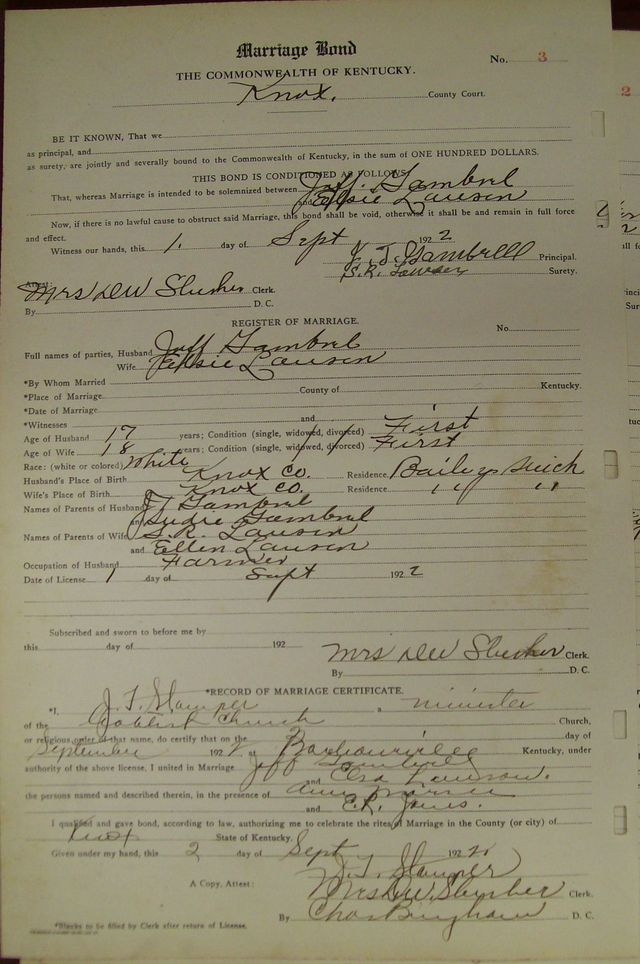 Marriage Bond
No. 3
THE COMMONWEALTH OF KENTUCKY.
Knox, County Court.
BE IT KNOWN, That we
as principal, and
as surety, are jointly and severally bound to the Commonwealth of Kentucky, in the sum of ONE HUNDRED DOLLARS.
THIS BOND IS CONDITIONED AS FOLLOWS:
That, whereas Marriage is intended to be solemnized between Jeff. Gambrel
and Elsie Lawson
Now, if there is no lawful cause to obstruct said Marriage, this bond shall be void, otherwise it shall be and remain in full force
and effect.
Witness our hands, this 1. day of Sept 1922
J. T. Gambrell Principal.
S. R. Lawson Surety.
Attest:
Mrs DW Slusher Clerk.
By D. C.
REGISTER OF MARRIAGE.
No.
Full names of parties, Husband Jeff Gambrel
Wife Elsie Lawson
*By Whom Married
*Place of Marriage County of Kentucky.
*Date of Marriage
*Witnesses and
Age of Husband 17 years; Condition (single, widowed, divorced) First
Age of Wife 18 years; Condition (single, widowed, divorced) First
Race: (white or colored) White
Husband's Place of Birth Knox Co. Residence Baileys
Wife's Place of Birth Knox Co. Residence " "
Names of Parents of Husband J T Gambrel
and Sudie Gambrel
Names of Parents of Wife S. R. Lawson
and Ellen Lawson
Occupation of Husband Farmer
Date of License 1 day of Sept 1922
Subscribed and sworn to before me by
this day of 192
Mrs DW Slusher Clerk.
By D. C.
*RECORD OF MARRIAGE CERTIFICATE.
*I, J. T. Stamper a minister
of the Baptist Church Church,
or religious order of that name, do certify that on the 2 day of
September 1922 at Barbourville Kentucky, under
authority of the above license, I united in Marriage Jeff Gambrell
and Lawson.
the persons named and described therein, in the presence of
and E. R. Jones.
I qualified and gave bond, according to law, authorizing me to celebrate the rites of Marriage in the County (or city) of
Knox State of Kentucky.
Given under my hand, this 2 day of Sept 1922
J. T. Stamper
A Copy, Attest: Mrs DW. Slusher Clerk.
By Chas Bingham D. C.
*Blanks to be filled by Clerk after return of License.
2